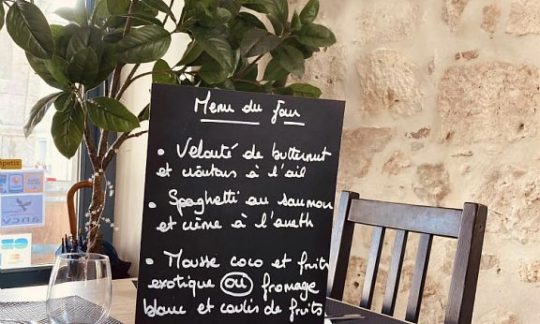 Menu du jour
• Velouté de butternut
et croûtons à l'ail
• Spaghetti au saumon
et crème à l'aneth
• Mousse coco et fruits
exotique ou fromage
blanc et coulis de fruits
ancv